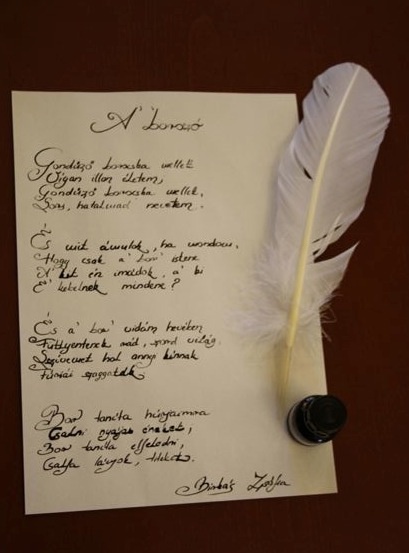 A' borozó
Gondűző borocska mellett
Vígan illan életem,
Gondűző borocska mellett,
Sors, hatalmad nevetem.
És mit ámulok, ha mondom,
Hogy csak a' bor' istene
A' kit én imádok, a' ki
E' kebelnek mindene?
És a' bor' vidám hevében
Füttyentenek rád, zord világ,
Szívemet hol annyi kínnak
Fúriái szaggaták.
Bor tanita húrjaimra
Csalni nyájas éneket,
Bor tanita elfeledni,
Csalfa lányok, titeket.